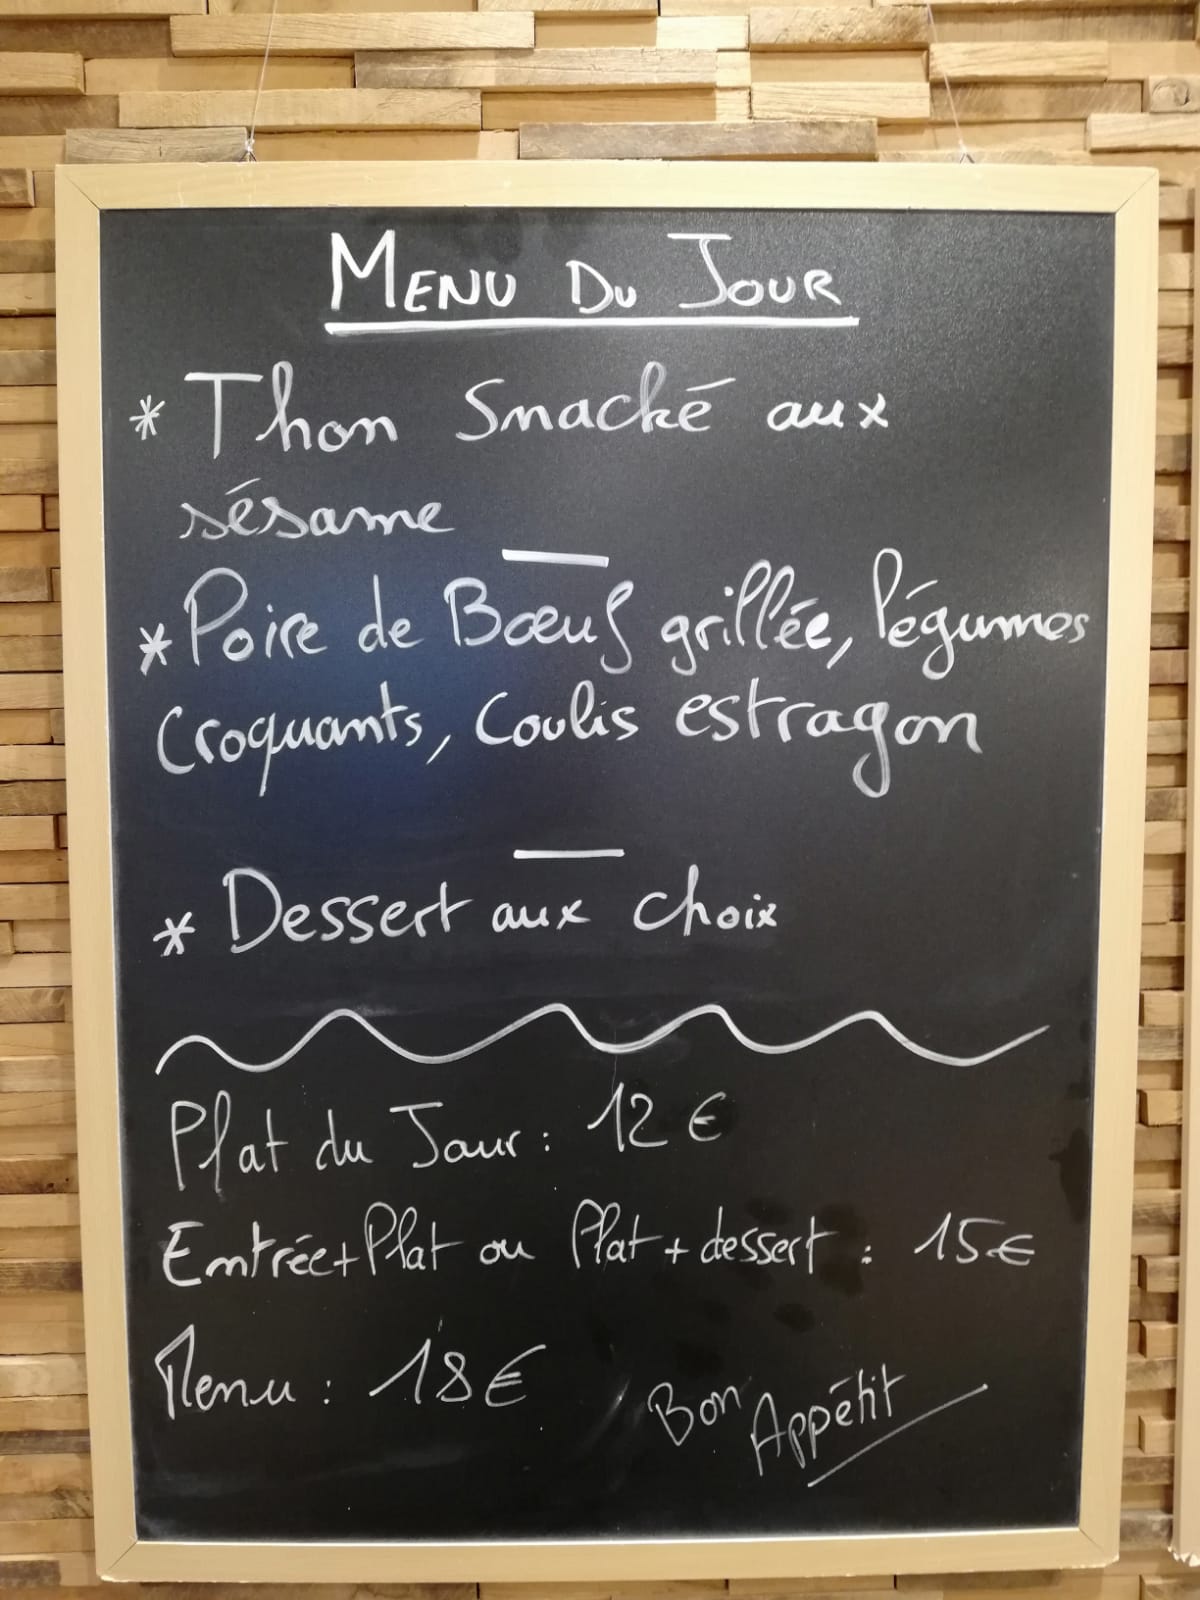 MENU DU JOUR
* Thon Snacké aux
sésame
* Poire de Bœuf grillée, légumes
Croquants, Coulis estragon
* Dessert aux choix
Plat du Jour : 12 €
Entrée + Plat ou Plat + dessert : 15 €
Menu : 18 €
Bon Appétit